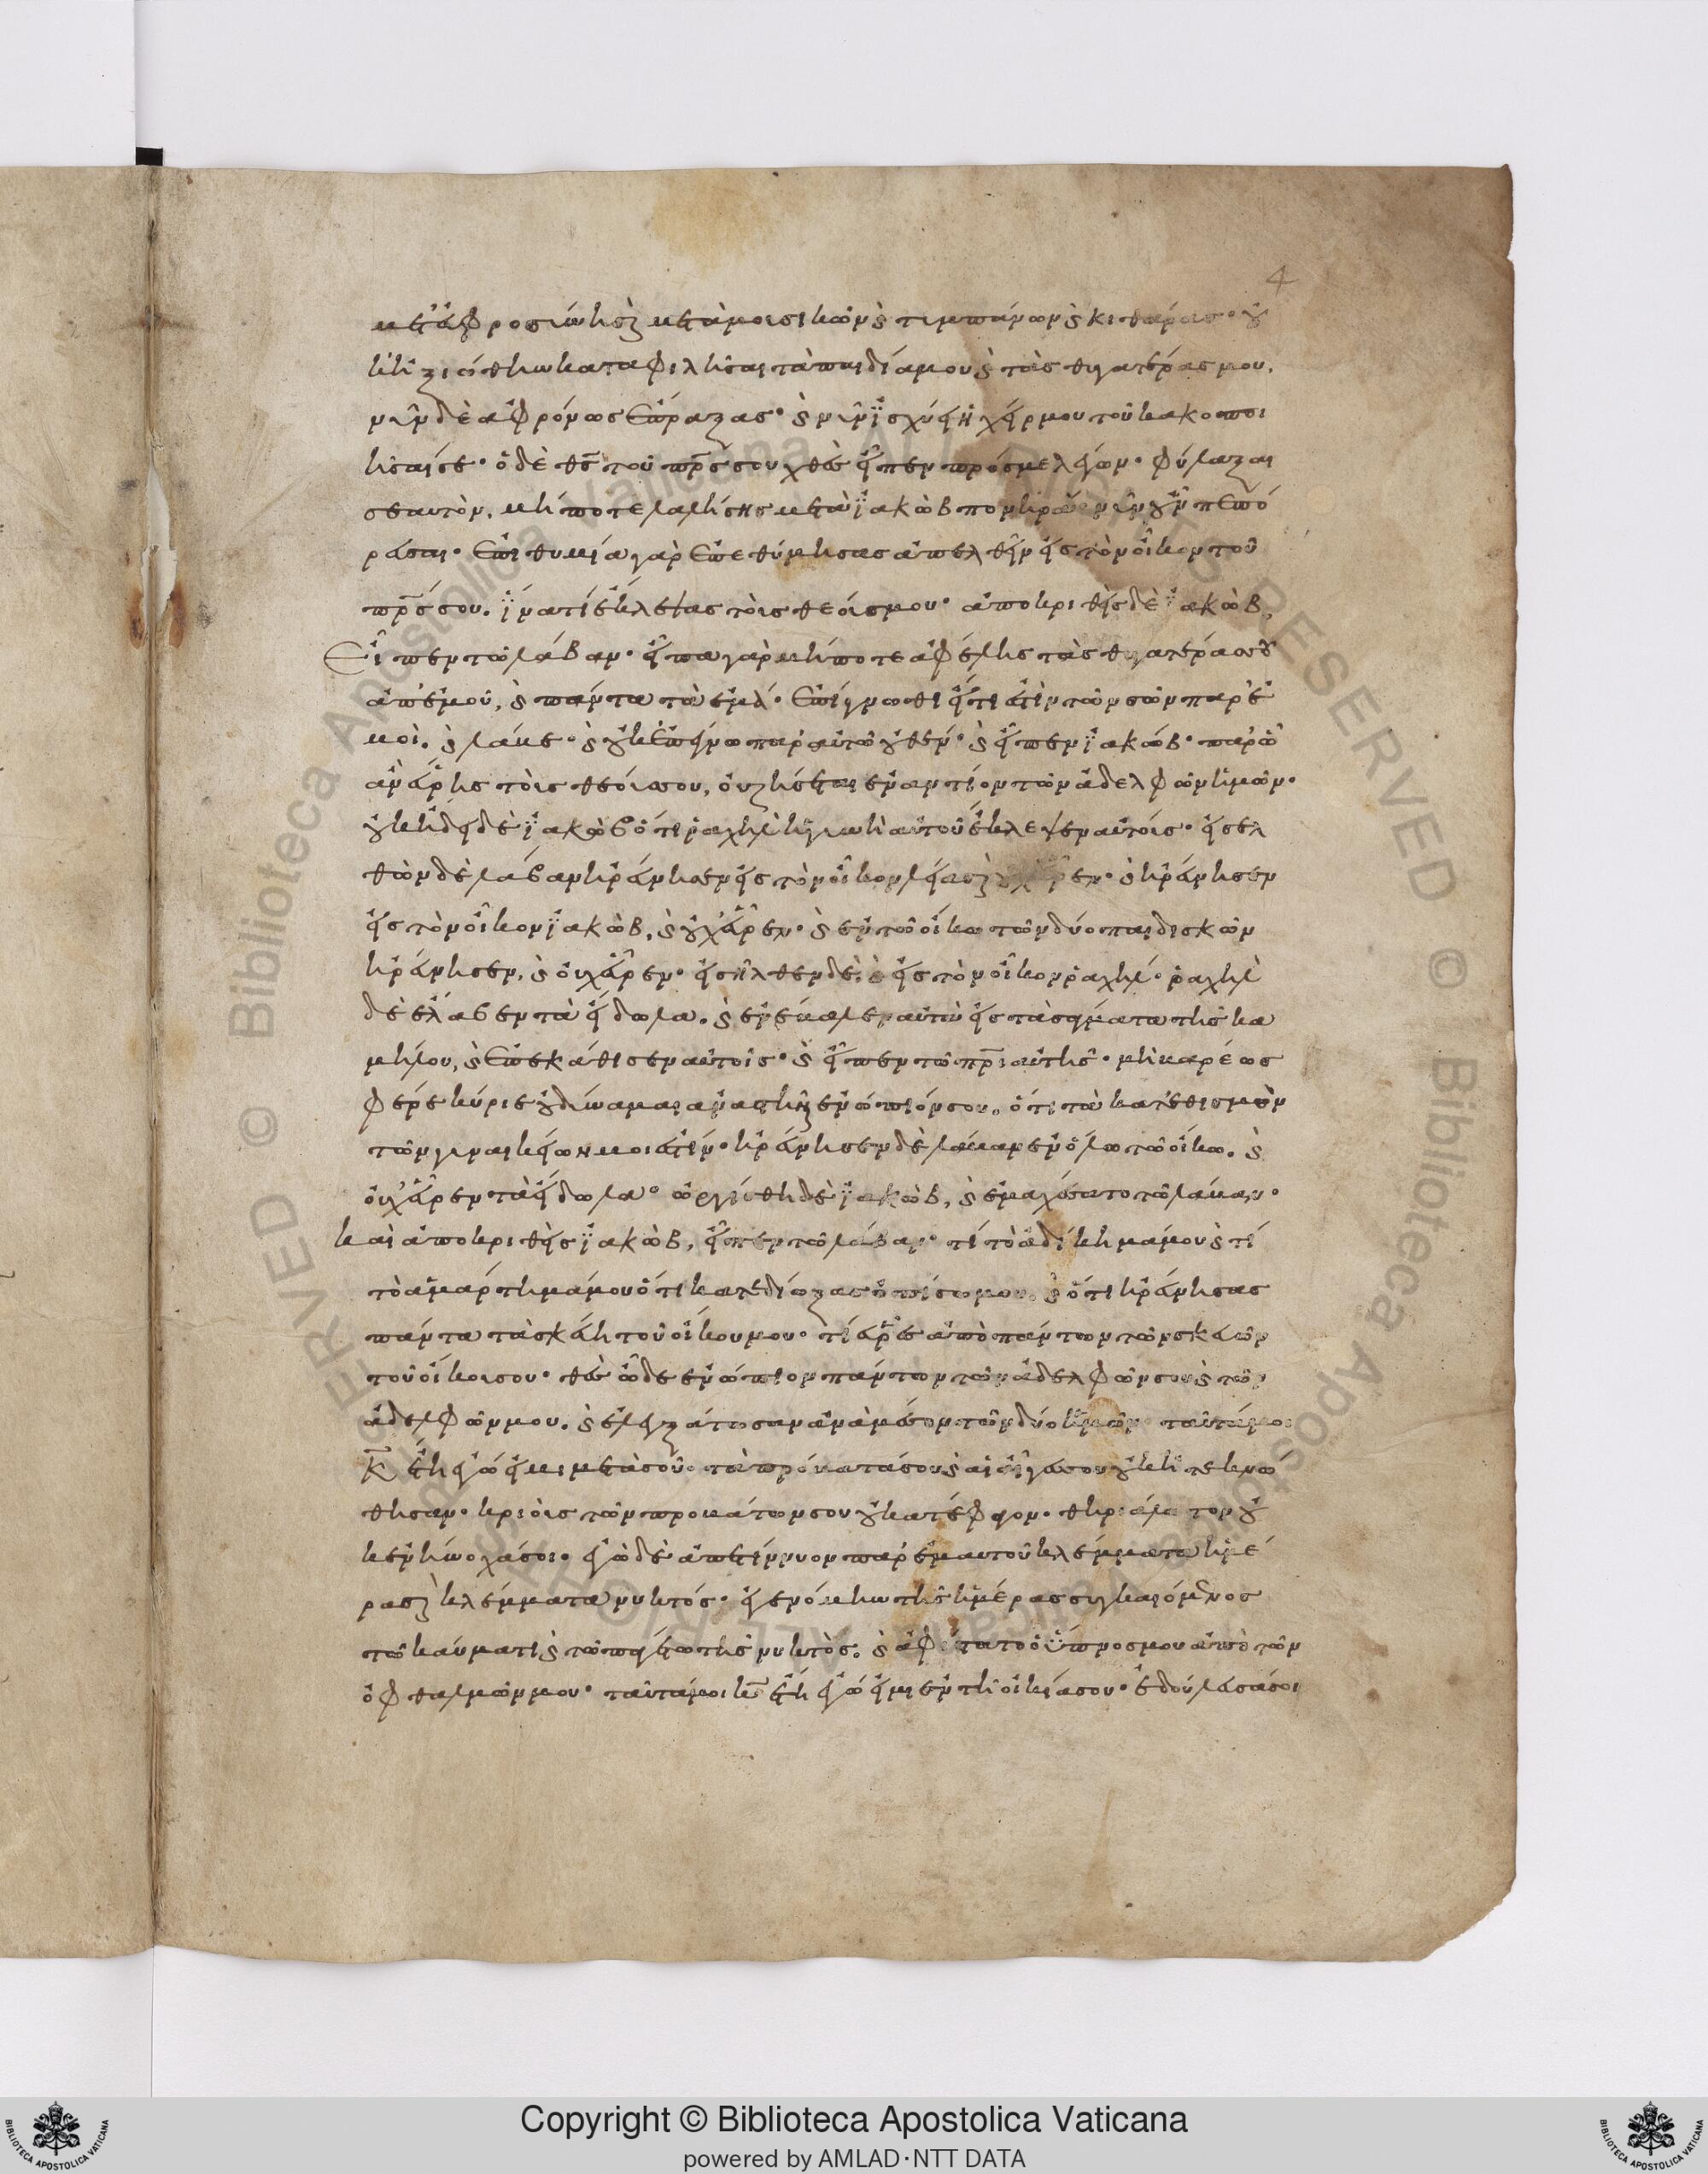 4
μετ' εὐφροσύνης καὶ μετὰ μουσικῶν καὶ τυμπάνων καὶ κιθάρας· οὐ
κ' ἠξιώθην καταφιλῆσαι τὰ παιδία μου καὶ τὰς θυγατέρας μου.
νῦν δὲ ἀφρόνως ἔπραξας· καὶ νῦν ϊσχύει ἡ χείρ μου τοῦ κακοποι
ῆσαί σε· ὁ δὲ θς τοῦ πρς σου χθὲς εἶπεν πρός με λέγων· φύλαξαι
σεαυτὸν, μήποτε λαλήσῃς μετὰ ϊακὼβ πονηρά· νῦν οὖν πεπό
ρευσαι· ἐπιθυμία γὰρ ἐπεθύμησας ἀπελθεῖν εἰς τὸν οἶκον τοῦ
πρς σου. ϊνατί ἔκλεψας τοὺς θεούς μου· ἀποκριθεὶς δὲ ϊακὼβ,
Εἶπεν τῷ λάβαν· εἶπα γὰρ μήποτε ἀφέλῃς τὰς θυγατέρας σου
ἀπ' ἐμοῦ, καὶ πάντα τὰ ἐμά· ἐπίγνωθι εἴ τι ἐστὶν τῶν σῶν παρ' ἐ
μοὶ. καὶ λάβε· καὶ οὐκ ἐπέγνω παρ' αὐτῷ οὐθέν· καὶ εἶπεν ϊακώβ· παρ' ᾧ
ἂν εὕρῃς τοὺς θεούς σου, οὐ ζήσεται ἐναντίον τῶν ἀδελφῶν ἡμῶν·
οὐκ ἤδει δὲ ϊακὼβ ὅτι ῥαχὴλ ἡ γυνὴ αὐτοῦ ἔκλεψεν αὐτούς· εἰσελ
θὼν δὲ λάβαν ἠρεύνησεν εἰς τὸν οἶκον λείας καὶ οὐχ εὗρεν· καὶ ἠρεύνησεν
εἰς τὸν οἶκον ϊακὼβ, καὶ οὐχ εὗρεν· καὶ ἐν τῷ οἴκῳ τῶν δύο παιδισκῶν
ἠρεύνησεν, καὶ οὐχ εὗρεν· εἰσῆλθεν δὲ καὶ εἰς τὸν οἶκον ῥαχήλ· ῥαχὴλ
δὲ ἔλαβεν τὰ εἴδωλα. καὶ ἐνέβαλεν αὐτὰ εἰς τὰ σάγματα τῆς κα
μήλου, καὶ ἐπεκάθισεν αὐτοῖς· καὶ εἶπεν τῷ πρι αὐτῆς· μὴ βαρέως
φέρε κύριε οὐ δύναμαι ἀναστῆναι ἐνώπιόν σου. ὅτι τὰ κατ' ἐθισμὸν
τῶν γυναικείων μοι ἐστίν· ἠρεύνησεν δὲ λάβαν ἐν ὅλῳ τῷ οἴκῳ. καὶ
οὐχ εὗρεν τὰ εἴδωλα· ὠργίσθη δὲ ϊακὼβ, καὶ ἐμαχέσατο τῷ λάβαν·
καὶ ἀποκριθεὶς ϊακὼβ, εἶπεν τῷ λάβαν· τί τὸ ἀδίκημά μου καὶ τί
τὸ ἁμάρτημά μου ὅτι κατεδίωξας ὀπίσω μου. καὶ ὅτι ἠρεύνησας
πάντα τὰ σκεύη τοῦ οἴκου μου· τί εὗρες ἀπὸ πάντων τῶν σκευῶν
τοῦ οἴκου σου· θὲς ὧδε ἐνώπιον πάντων τῶν ἀδελφῶν σου καὶ τῶν
ἀδελφῶν μου. καὶ ἐλεγξάτωσαν ἀνὰ μέσον τῶν δύο ἡμῶν· ταῦτά μοι
Κ ἔτη ἐγώ εἰμι μετὰ σοῦ· τὰ πρόβατά σου καὶ αἱ αἶγές σου οὐκ ἠτεκνώ
θησαν· κριοὺς τῶν προβάτων σου οὐ κατέφαγον· θηριάλωτον οὐ
κ ἐνήνοχά σοι· ἐγὼ δὲ ἀπετίννυον παρ' ἐμαυτοῦ κλέμματα ἡμέ
ρας καὶ κλέμματα νυκτός· ἐγενόμην τῆς ἡμέρας συγκαιόμενος
τῷ καύματι καὶ τῷ παγετῷ τῆς νυκτὸς. καὶ ἀφίστατο ὁ ὕπνος μου ἀπὸ τῶν
ὀφθαλμῶν μου· ταῦτά μοι κ ἔτη ἐγώ εἰμι ἐν τῇ οἰκίᾳ σου· ἐδούλευσά σοι
Copyright © Biblioteca Apostolica Vaticana
powered by AMLAD·NTT DATA